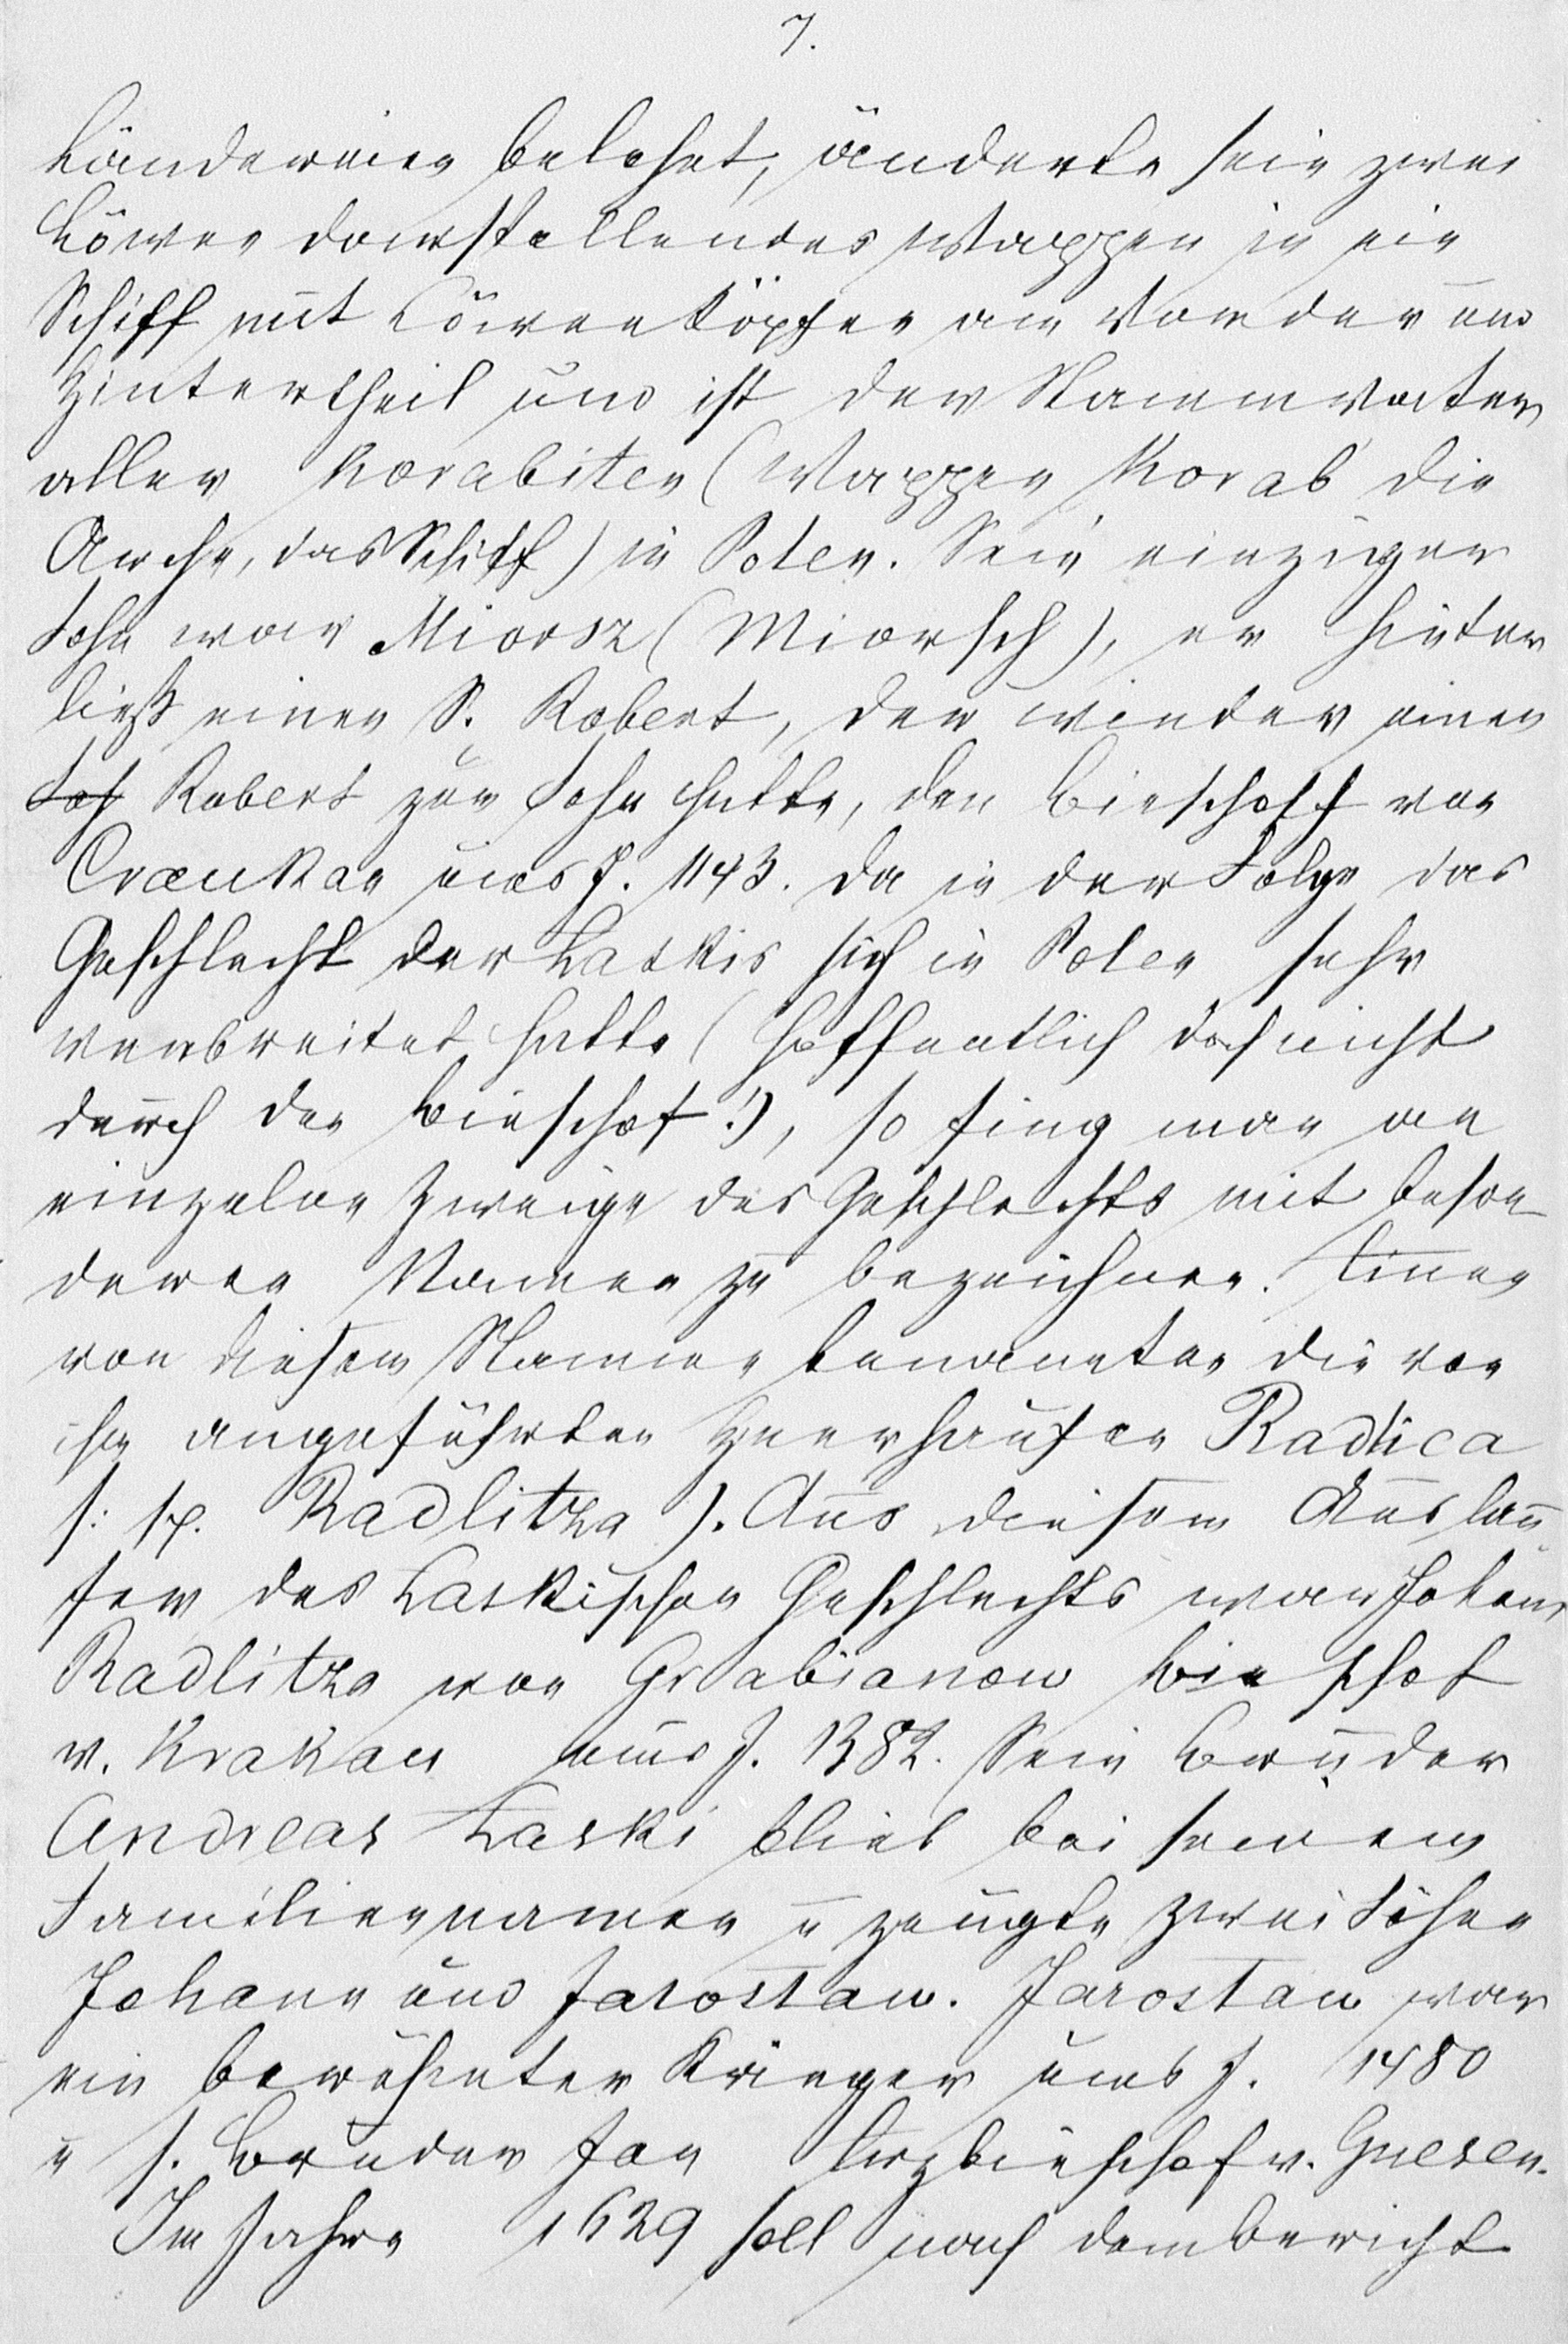 7.
Ländereien belehnt, änderte sein zwei
Löwen darstellendes Wappen in ein
Schiff mit Löwenköpfen am Vorder und
Hintertheil und ist der Stammvater
aller Korabiten (Wappen Korab die
Arche, das Schiff) in Polen. Sein einziger
Sohn war Miorsz (Miorsch), er hinter
ließ einen S. Robert, der wieder einen
Soh Robert zum Sohn hatte, den Bischoff von
Cracukau ums J. 1143. Da in der Folge das
Geschlecht der Laskis sich in Polen sehr
verbreitet hatte (hoffentlich doch nicht
durch den Bischof!), so fing man an
einzelne Zweige des Geschlechts mit beson
deren Namen zu bezeichnen. Einer
von diesem Stamme benannte die von
ihm angeführten Heerhaufen Radlica
s: sp. Radlitza). Aus diesem Ausläu
fer des Laskischen Geschlechts war Johann
Radlitza von Grabianow Bischof
v. Krakau ums J. 1382. Sein Bruder
Andreas Laski blieb bei seinem
Familiennamen u zeugte zwei Söhne
Johann und Jarostaw. Jarostaw war
ein berühmter Krieger ums J. 1480
u s. Bruder Jan Erzbischof v. Gnesen.
Im Jahre 1629 soll nach dem Bericht